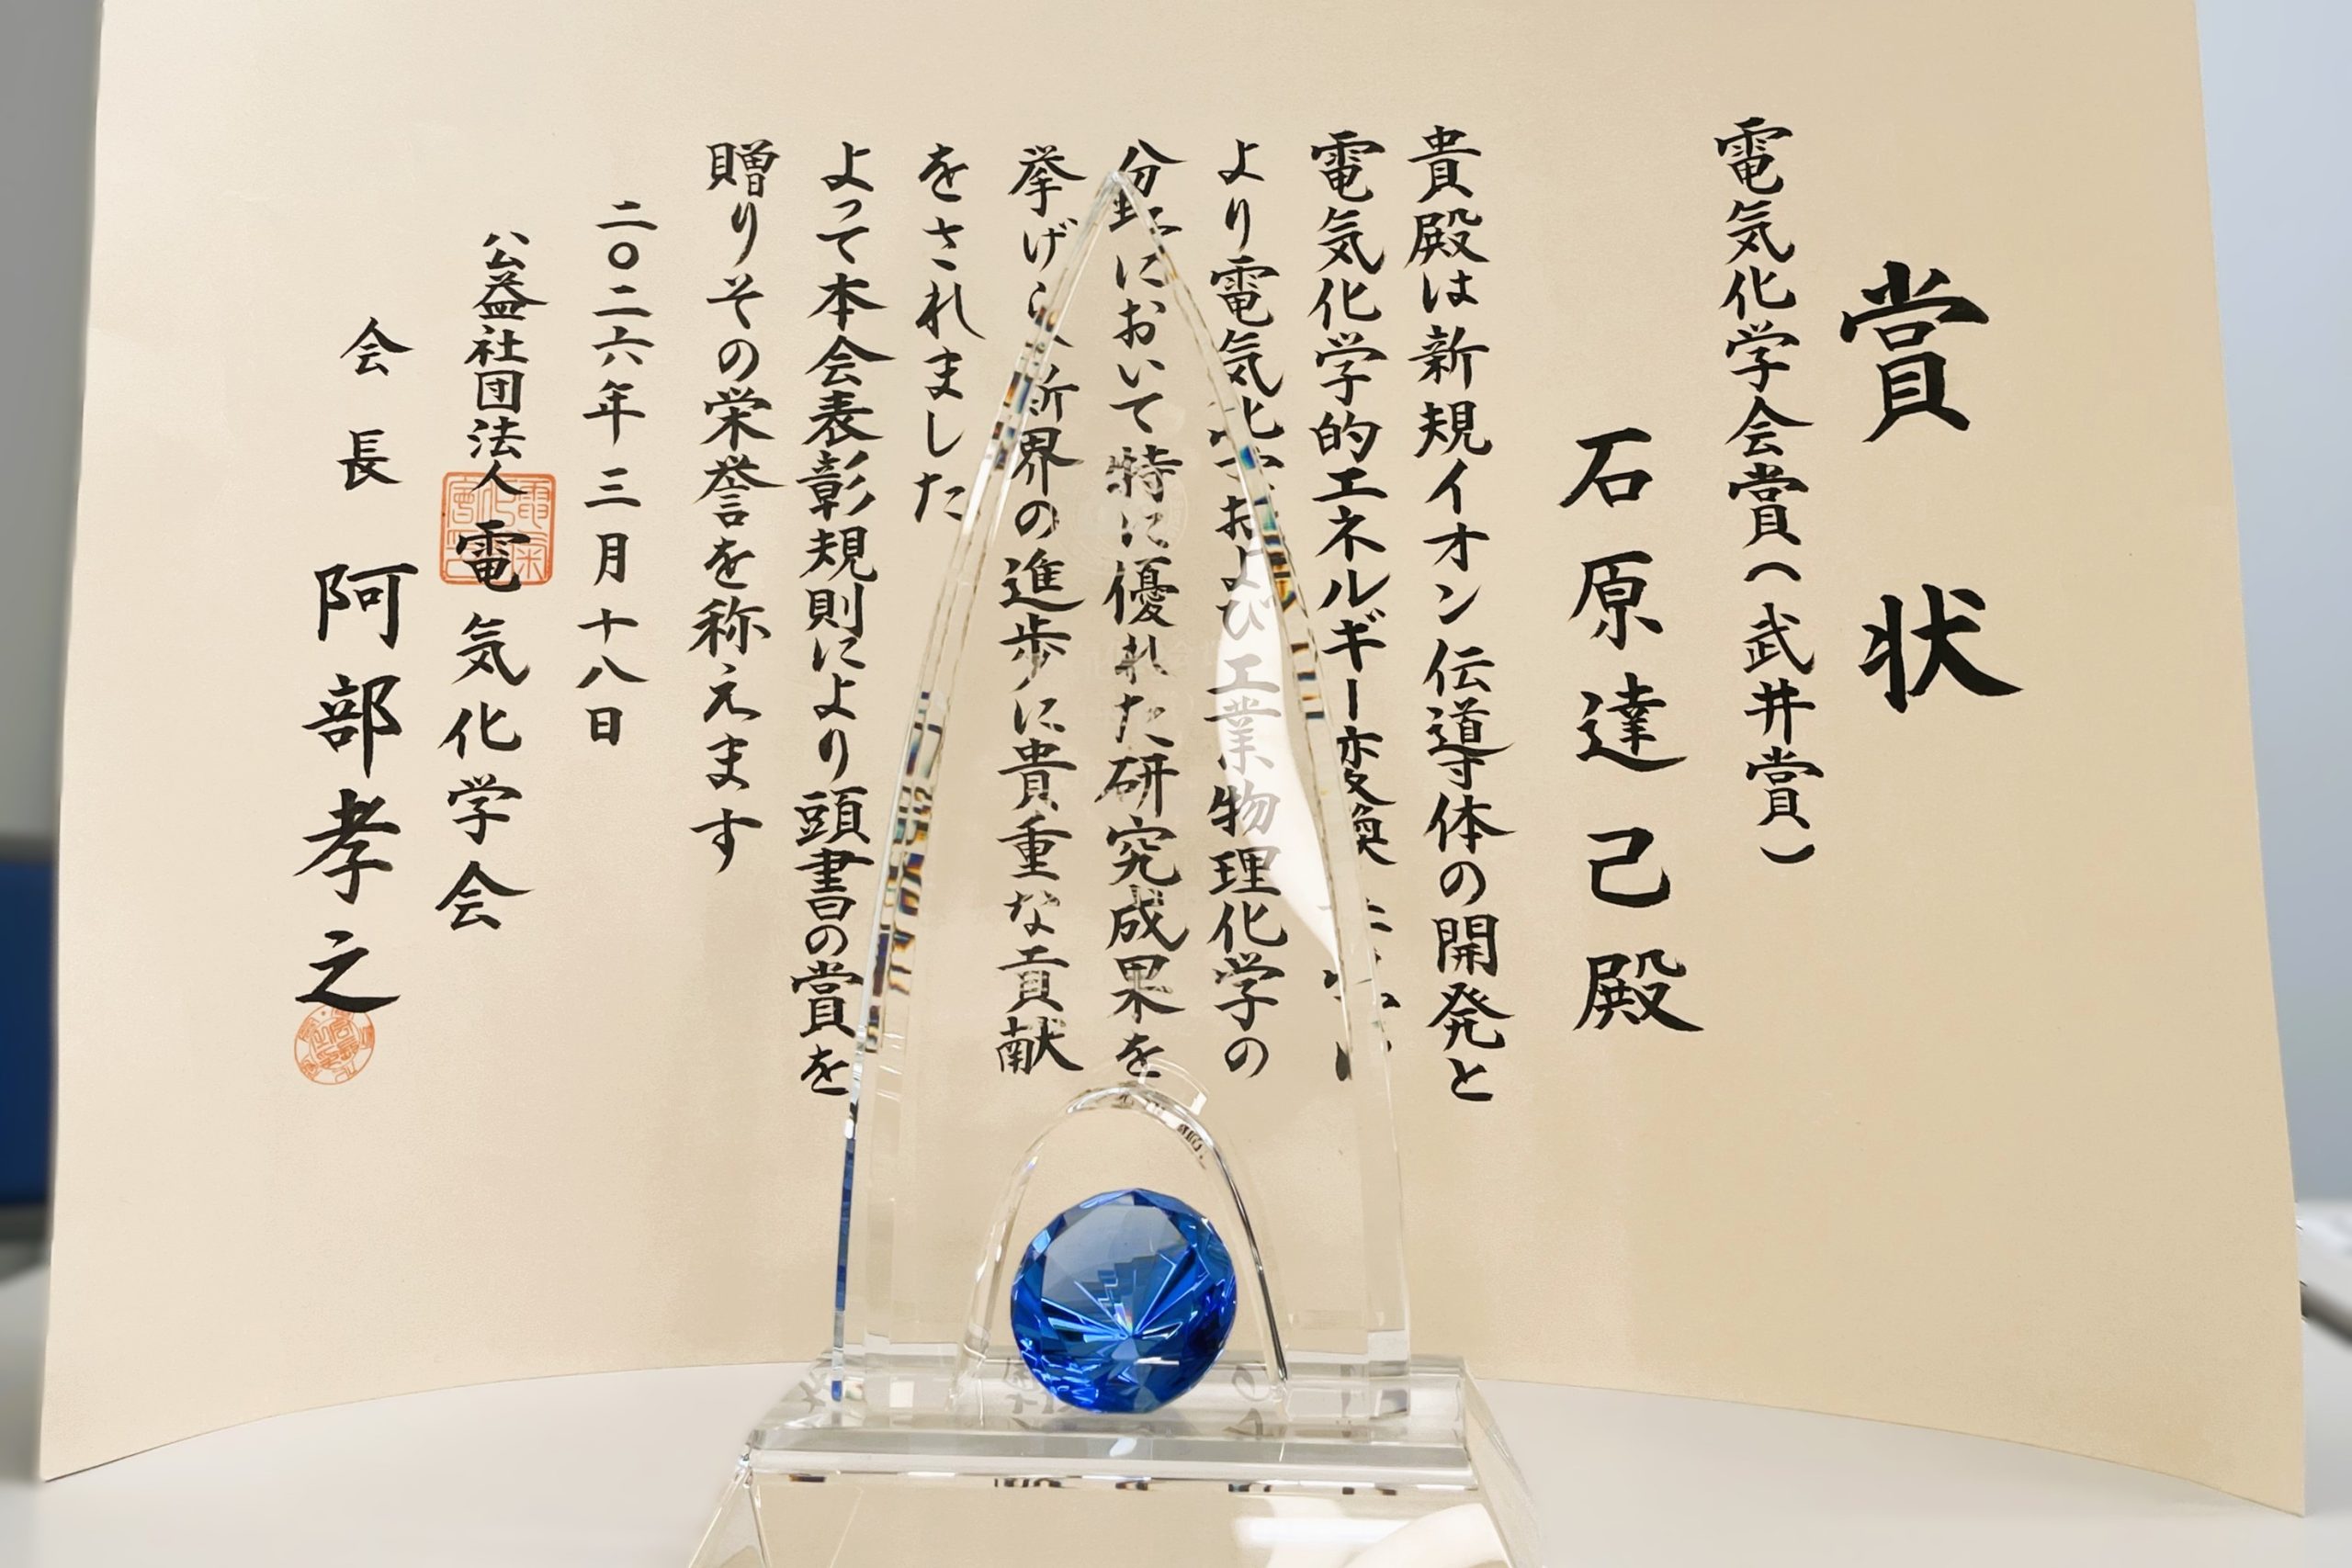 賞状
電気化学会賞(武井賞)
石原達己殿
貴殿は新規イオン伝導体の開発と
電気化学的エネルギー変換
より電気化学および工業物理化学の
分野において特に優れた研究成果を
挙げられ斯界の進歩に貴重な貢献
をされました
よって本会表彰規則により頭書の賞を
贈りその栄誉を称えます
二〇二六年三月十八日
公益社団法人電気化学会
会長 阿部孝之